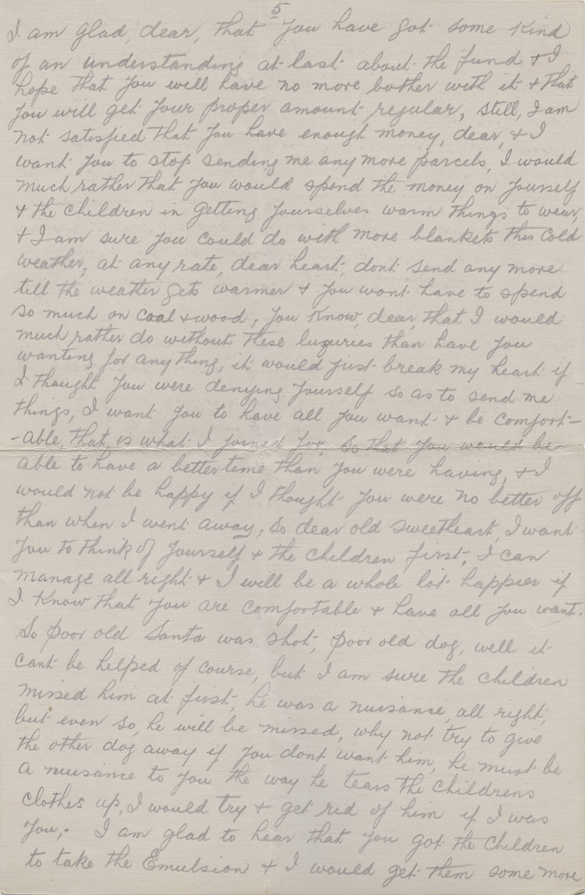 5
I am glad, dear, that you have got some kind
of an understanding at last about the fund & I
hope that you will have no more bother with it & that
you will get your proper amount regular, still, I am
not satisfied that you have enough money, dear, & I
want you to stop sending me any more parcels, I would
much rather that you would spend the money on yourself
& the children in getting yourselves warm things to wear
& I am sure you could do with more blankets this cold
weather, at any rate, dear heart, dont send any more
till the weather gets warmer & you wont have to spend
so much on coal & wood, you know, dear, that I would
much rather do without these luxuries than have you
wanting for anything, it would just break my heart if
I thought you were denying yourself so as to send me
things, I want you to have all you want & be comfort-
-able, that is what I joined for, so that you would be
able to have a better time than you were having, & I
would not be happy if I thought you were no better off
than when I went away, so dear old sweetheart, I want
you to think of yourself & the children first, I can
manage all right & I will be a whole lot happier if
I know that you are comfortable & have all you want.
So poor old Santa was shot, poor old dog, well it
cant be helped of course, but I am sure the children
missed him at first, he was a nuisance, all right,
but even so, he will be missed, why not try to give
the other dog away if you dont want him, he must be
a nuisance to you the way he tears the childrens
clothes up, I would try & get rid of him if I was
you. I am glad to hear that you got the children
to take the Emulsion & I would get them some more